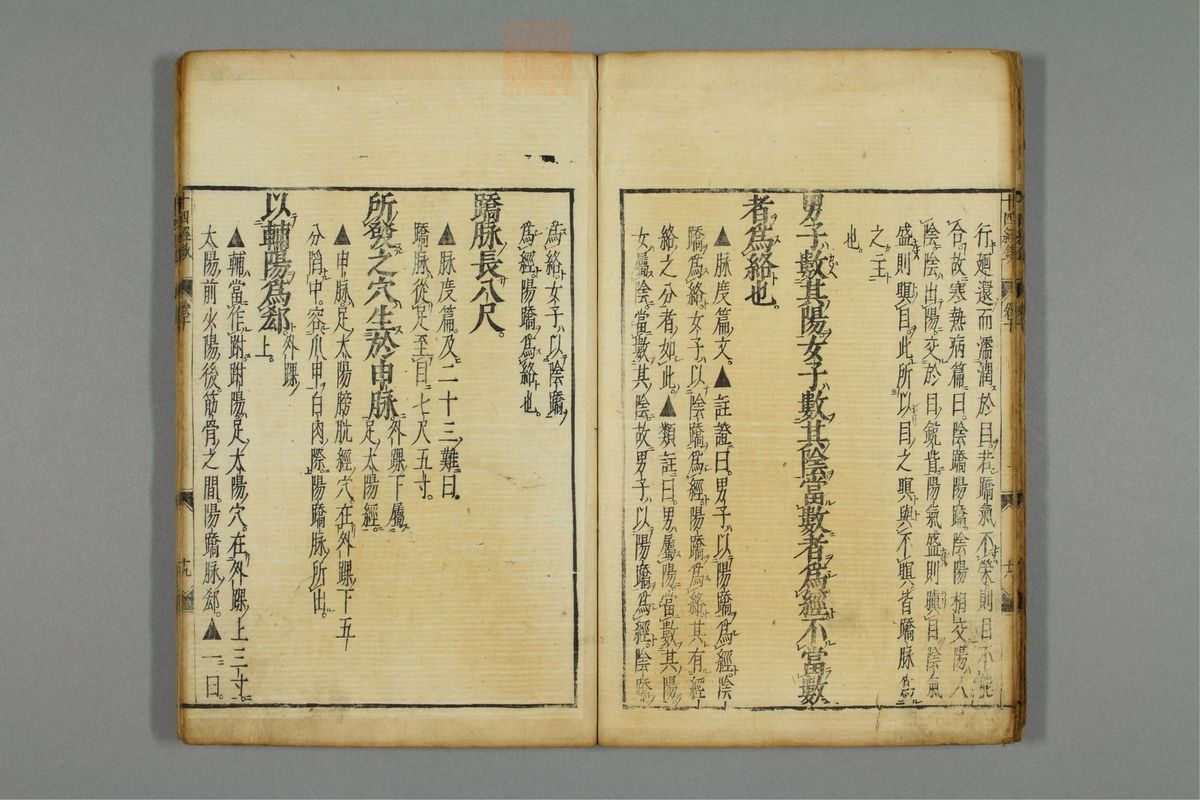 行廻還而濡潤於目若蹻氣不榮則目不能
合故寒熱病篇曰陰蹻陽蹻陰陽相交陽入
陰陰出陽交於目銳眥陽氣盛則瞋目陰氣
盛則瞑目此所以目之瞑與不瞑皆蹻脉爲
之主
也
男子數其陽女子數其陰當數者爲經不當數
者爲絡也
▲脉度篇文▲註證曰男子以陽蹻爲經陰
蹻爲絡女子以陰蹻爲經陽蹻爲絡其有經
絡之分者如此▲類註曰男屬陽當數其陽
女屬陰當數其陰故男子以陽蹻爲經陰蹻
爲絡女子以陰蹻
爲經陽蹻爲絡也
蹻脉長八尺
▲脉度篇及二十三難曰
蹻脉從足至目七尺五寸
所發之穴生於申脉外踝下屬足太陽經
▲申脉足太陽膀胱經穴在外踝下五
分陷中容爪甲白肉際陽蹻脉所出
以輔陽爲郄外踝上
▲輔當作跗跗陽足太陽穴在外踝上三寸
太陽前少陽後筋骨之間陽蹻脉郄▲一曰
十四經
卷十
十九